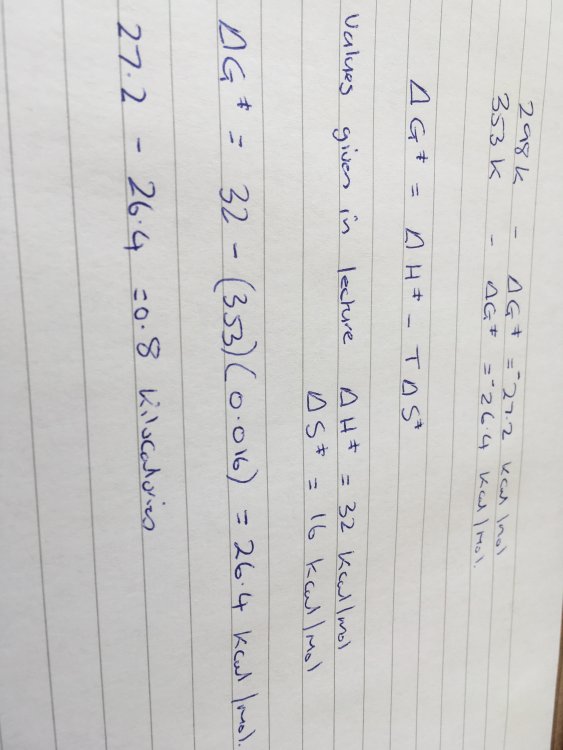 298K - ΔG‡ = -27.2 kcal/mol
353K - ΔG‡ = -26.4 kcal/mol.
ΔG‡ = ΔH‡ - TΔS‡
Values given in lecture ΔH‡ = 32 kcal/mol
ΔS‡ = 16 kcal/mol
ΔG‡ = 32 - (353)(0.016) = 26.4 kcal/mol.
27.2 - 26.4 = 0.8 kilocalories